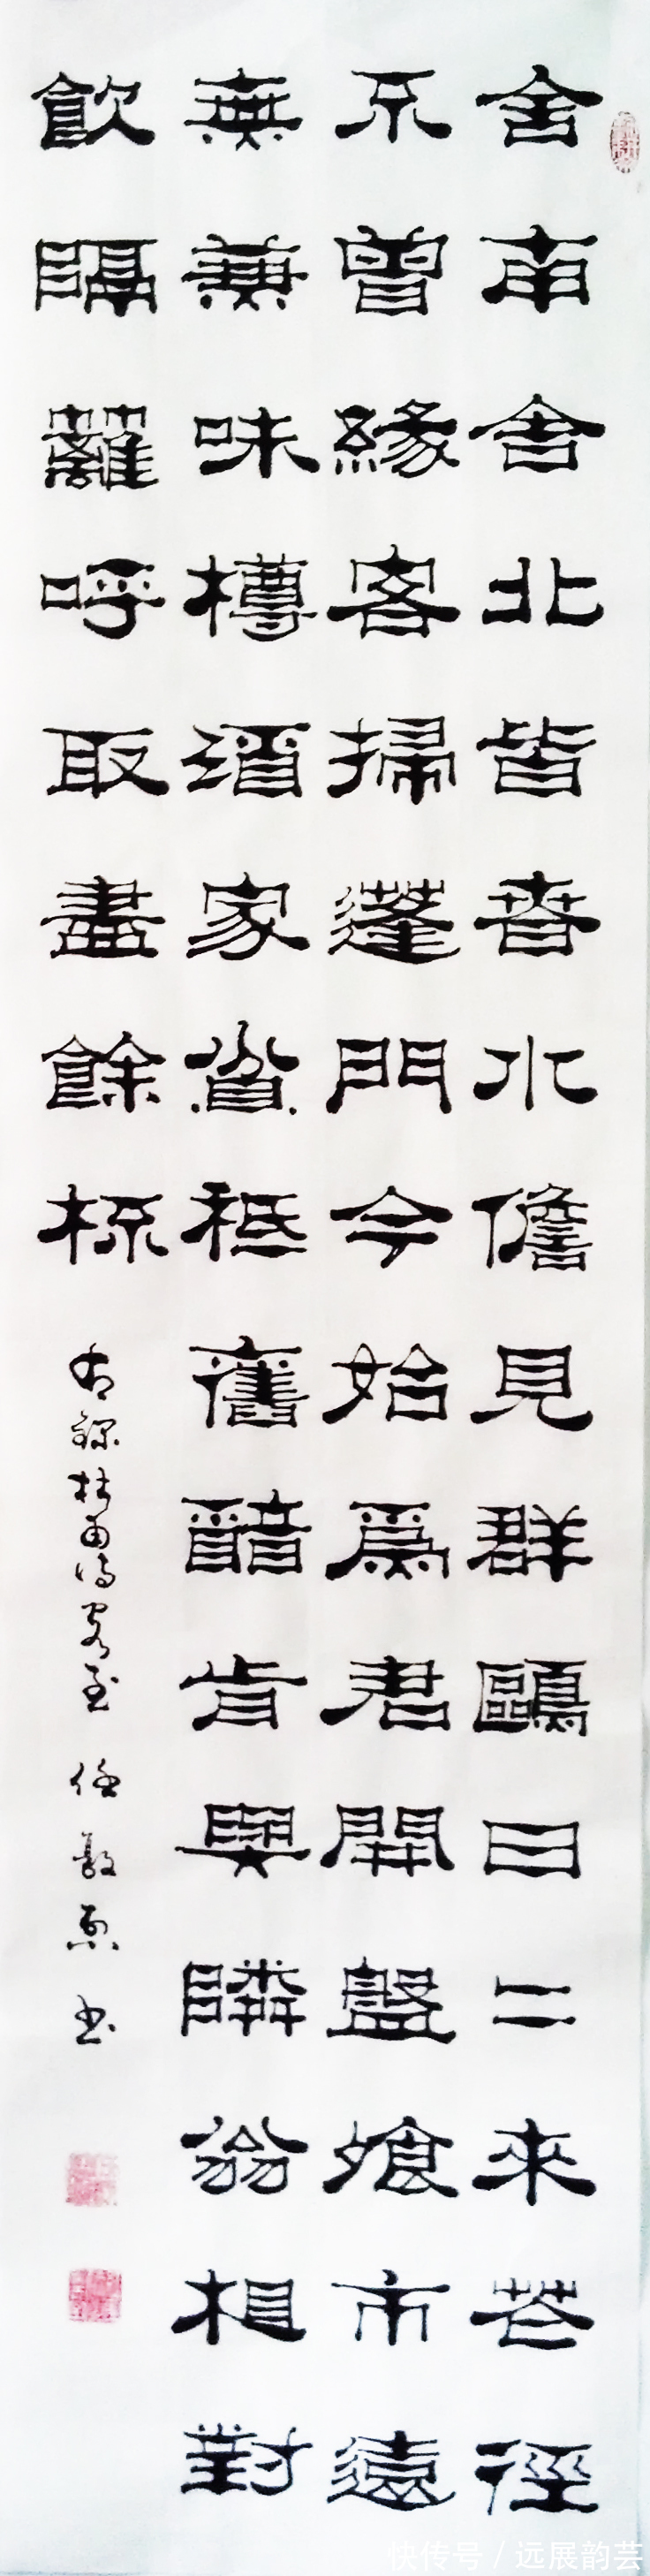 舍南舍北皆春水儋見群鷗日二來花徑
不曾緣客掃蓬門今始爲君開盤飧市遠
無兼味樽酒家貧秪舊醅肯與隣翁相對
飲隔籬呼取盡餘杯
右録杜甫詩客至 任 书
快传号 / 远展韵芸